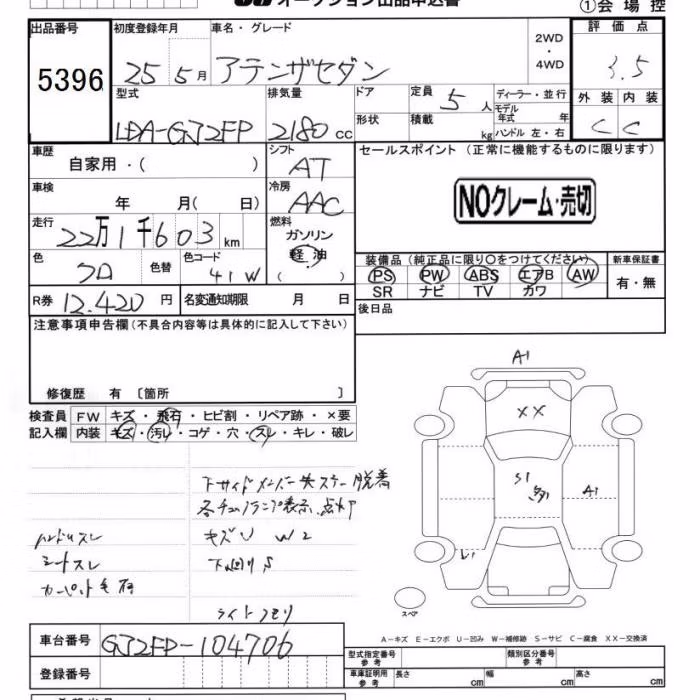 オークション出品申込書
①会場控
出品番号
5396
初度登録年月
25 5月
車名・グレード
アテンザセダン
2WD
・
4WD
評価点
3.5
型式
LDA-GJ2FP
排気量
2180 cc
ドア
形状
定員
5人
積載
kg
ディーラー・並行
モデル年式 年
ハンドル 左・右
外装 内装
C C
車歴
自家用・( )
シフト
AT
セールスポイント (正常に機能するものに限ります)
NOクレーム・売切
車検
年 月( 日)
冷房
AAC
走行
22万1千603km
燃料
ガソリン
軽油
( )
色
クロ
色替
色コード
41W
装備品 (純正品に限り○をつけてください)
PS PW ABS エアB AW
SR ナビ TV カワ
新車保証書
有・無
R券
12.420 円
名変通知期限 月 日
後日品
注意事項申告欄(不具合内容等は具体的に記入して下さい)
修復歴 有 〔箇所 〕
検査員
記入欄
FW キズ・飛石・ヒビ割・リペア跡・×要
内装 キズ・汚れ・コゲ・穴・スレ・キレ・破レ
下サイドメンバー
脱着
ランプ表示.点灯
キズU W2
ハンドルスレ
シートスレ
下回りS
カーペット
ライトクモリ
A1
XX
S1
A1
スペア
A-キズ E-エクボ U-凹み W-補修跡 S-サビ C-腐食 XX-交換済
車台番号
GJ2FP-104706
登録番号
型式指定番号
参考
類別区分番号
参考
車庫証明用
参考
長さ cm
幅 cm
高さ cm